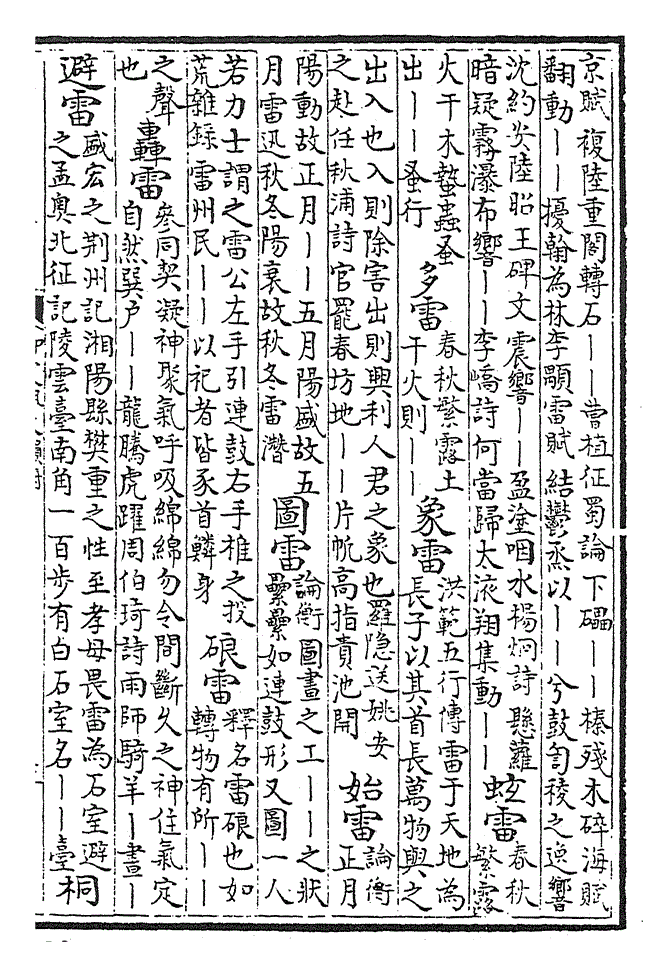 京賦複陸重閣轉石――曹植征蜀論下礧――榛殘木碎海賦
翻動――擾翰為林李顒雷賦結鬱烝以――兮鼓訇稜之逸響
沈約炎陸昭王碑文震響――盈塗咽水楊炯詩懸蘿
暗疑霧瀑布響――李嶠詩何當歸太液翔集動――
蚿雷
春秋
繁露
火干木蟄蟲蚤
出――蚤行
多雷
春秋繁露土
干火則――
象雷
洪範五行傳雷于天地為
長子以其首長萬物與之
出入也入則除害出則興利人君之象也羅隐送姚安
之赴任秋浦詩官罷春坊地――片帆高指貴池開
始雷
論衡
正月
陽動故正月――五月陽盛故五
月雷迅秋冬陽衰故秋冬雷潛
圖雷
論衡圖畫之工――之狀
纍纍如連鼓形又圖一人
若力士謂之雷公左手引連鼓右手椎之投
荒雜錄雷州民――以祀者皆豕首鱗身
硠雷
釋名雷硠也如
轉物有所――
之聲
也
轟雷
參同契凝神聚氣呼吸綿綿勿令間斷久之神住氣定
自然巽户――龍騰虎躍周伯琦詩雨師騎羊―晝―
避雷
盛宏之荆州記湘陽縣樊重之性至孝母畏雷為石室避
之孟奧北征記陵雲臺南角一百步有白石室名――臺
桐